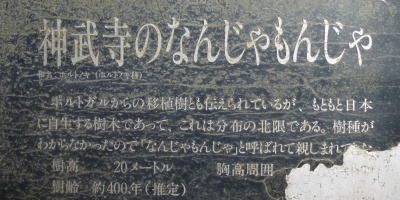 神武寺のなんじゃもんじゃ
和名・ホルトノキ(ホルトノキ科)
ポルトガルからの移植樹とも伝えられているが、もともと日本
に自生する樹木であって、これは分布の北限である。樹種が
わからなかったので「なんじゃもんじゃ」と呼ばれて親しまれて
樹高 20メートル 胸高周囲
樹齢 約400年(推定)